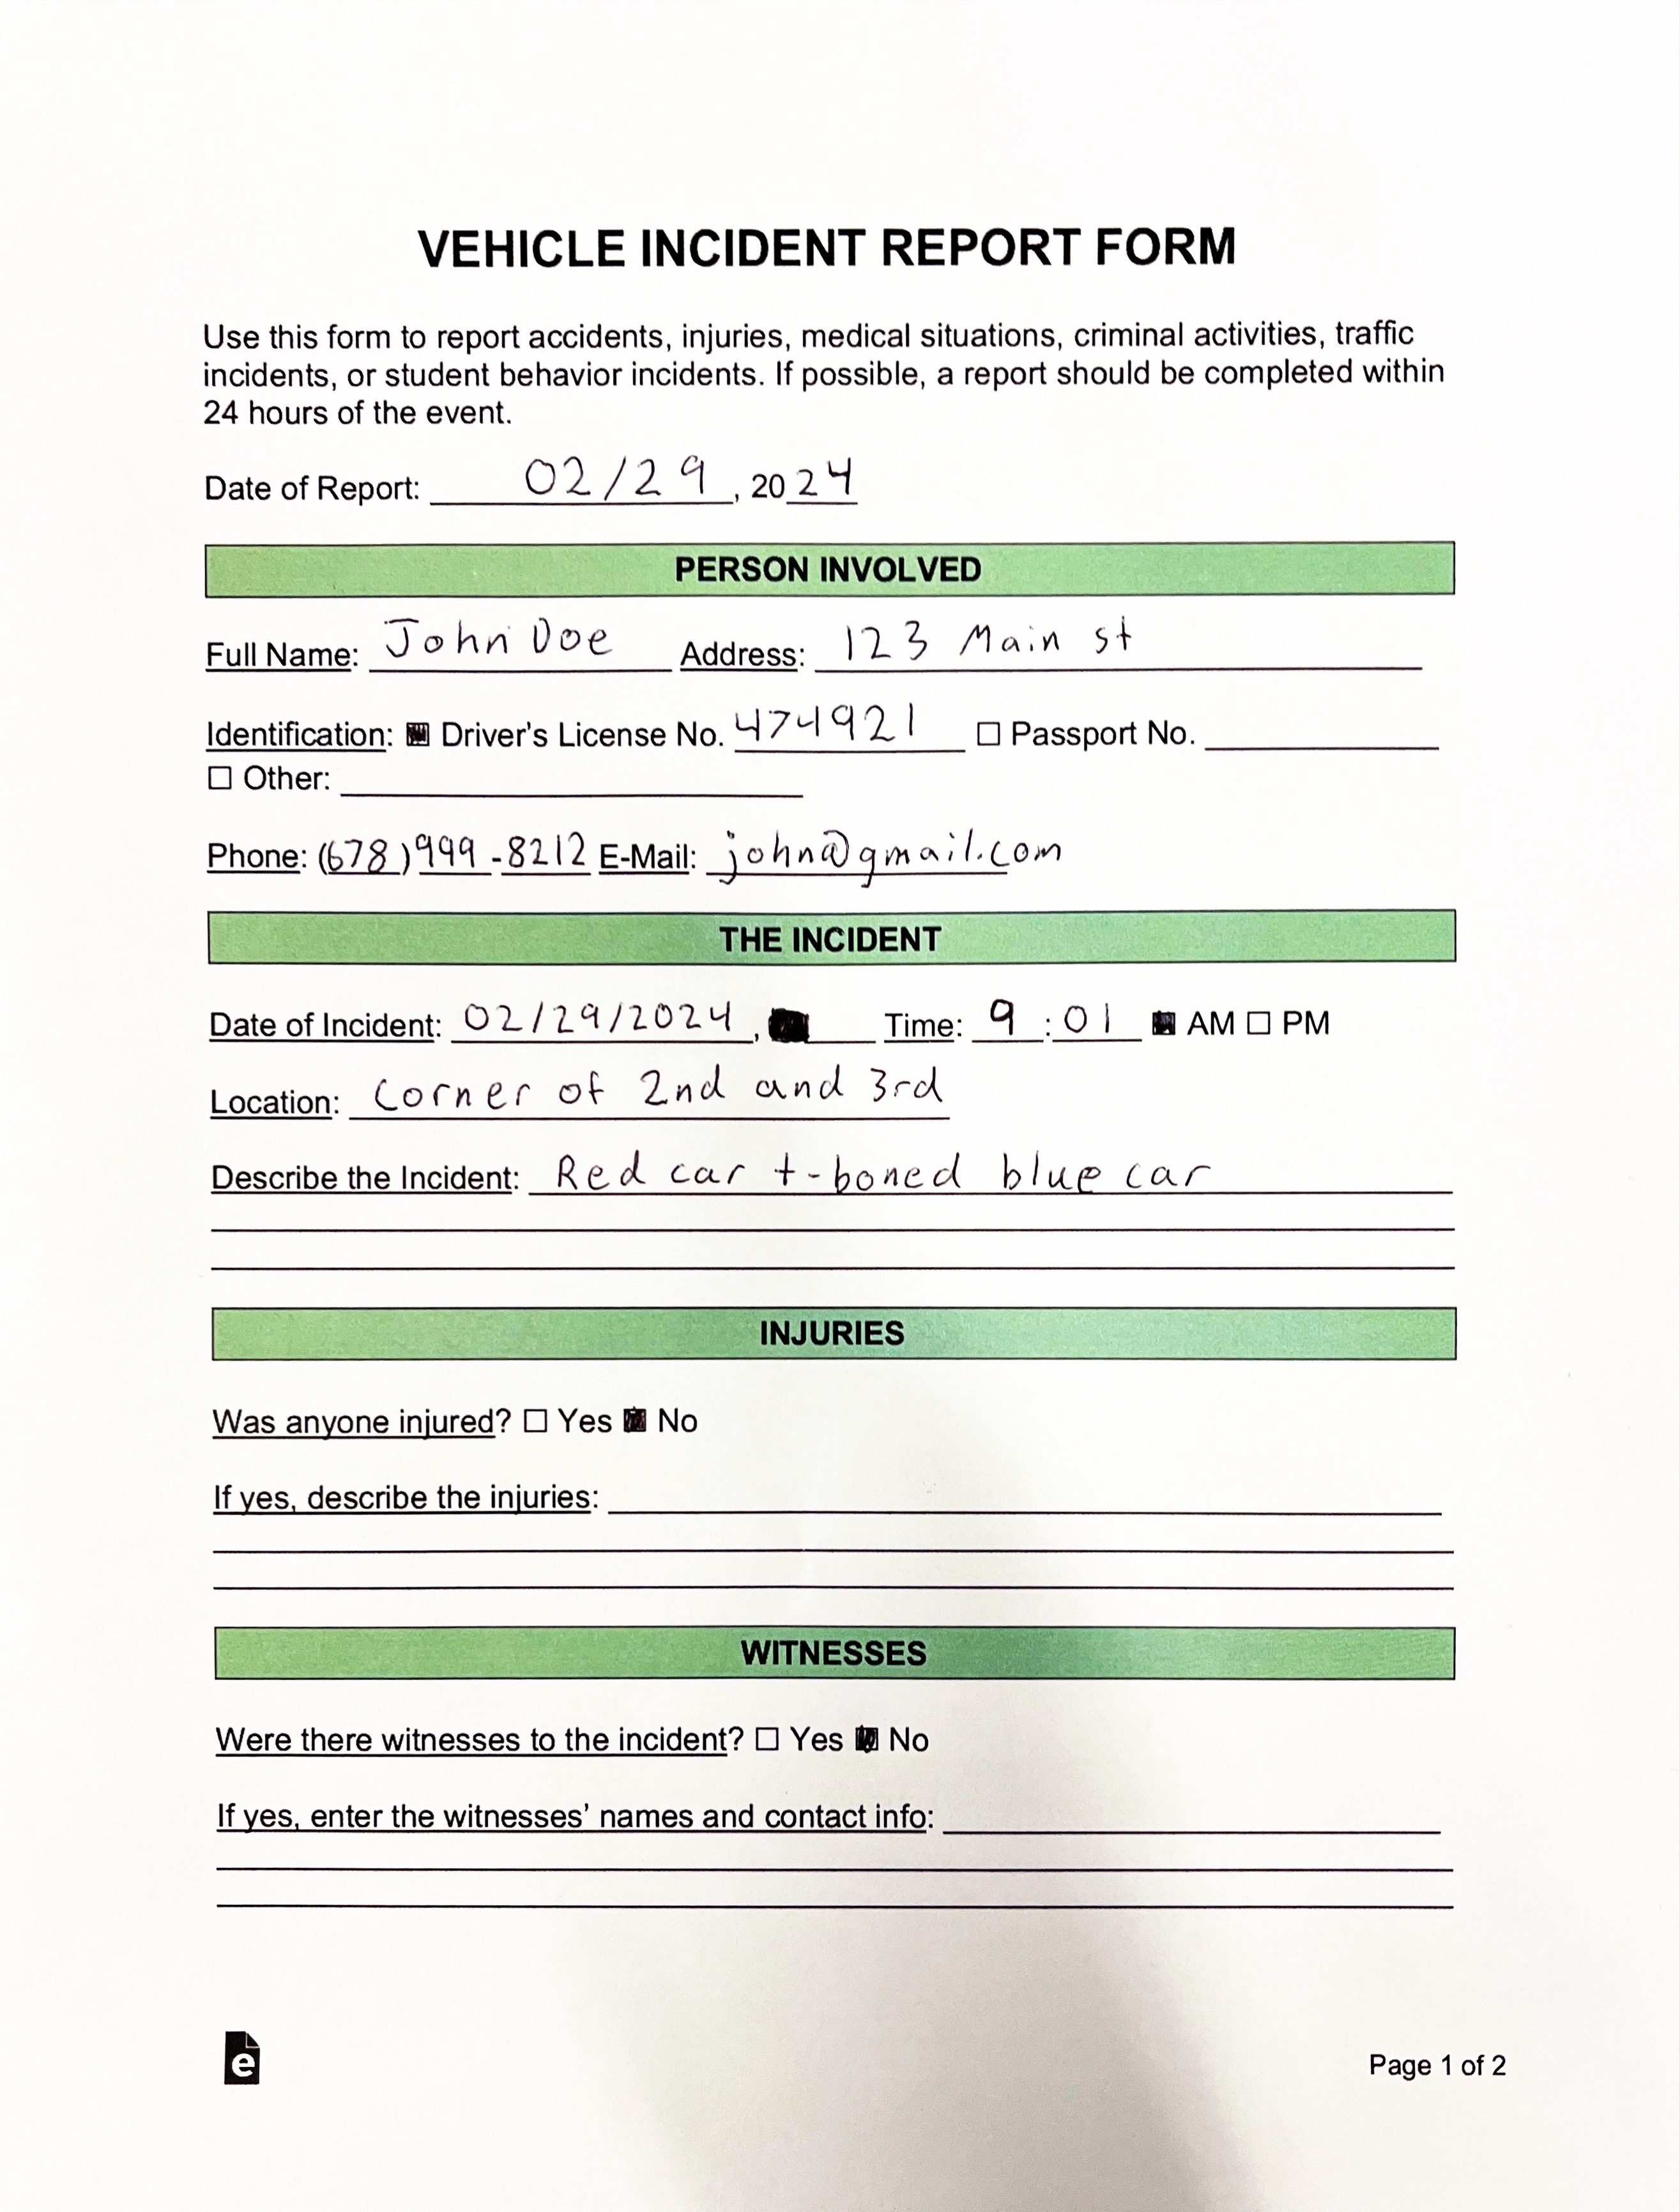 VEHICLE INCIDENT REPORT FORM
Use this form to report accidents, injuries, medical situations, criminal activities, traffic
incidents, or student behavior incidents. If possible, a report should be completed within
24 hours of the event.
Date of Report: 02/29, 2024
PERSON INVOLVED
Full Name: John Doe Address: 123 Main st
Identification: Driver's License No. 474921 ☐ Passport No.
☐ Other:
Phone: (678)999-8212 E-Mail: john@gmail.com
THE INCIDENT
Date of Incident: 02/29/2024, Time: 9:01 ■ AM ☐ PM
Location: Corner of 2nd and 3rd
Describe the Incident: Red car t-boned blue car
INJURIES
Was anyone injured? ☐ Yes ■ No
If yes, describe the injuries:
WITNESSES
Were there witnesses to the incident? ☐ Yes ■ No
If yes, enter the witnesses' names and contact info:
e
Page 1 of 2